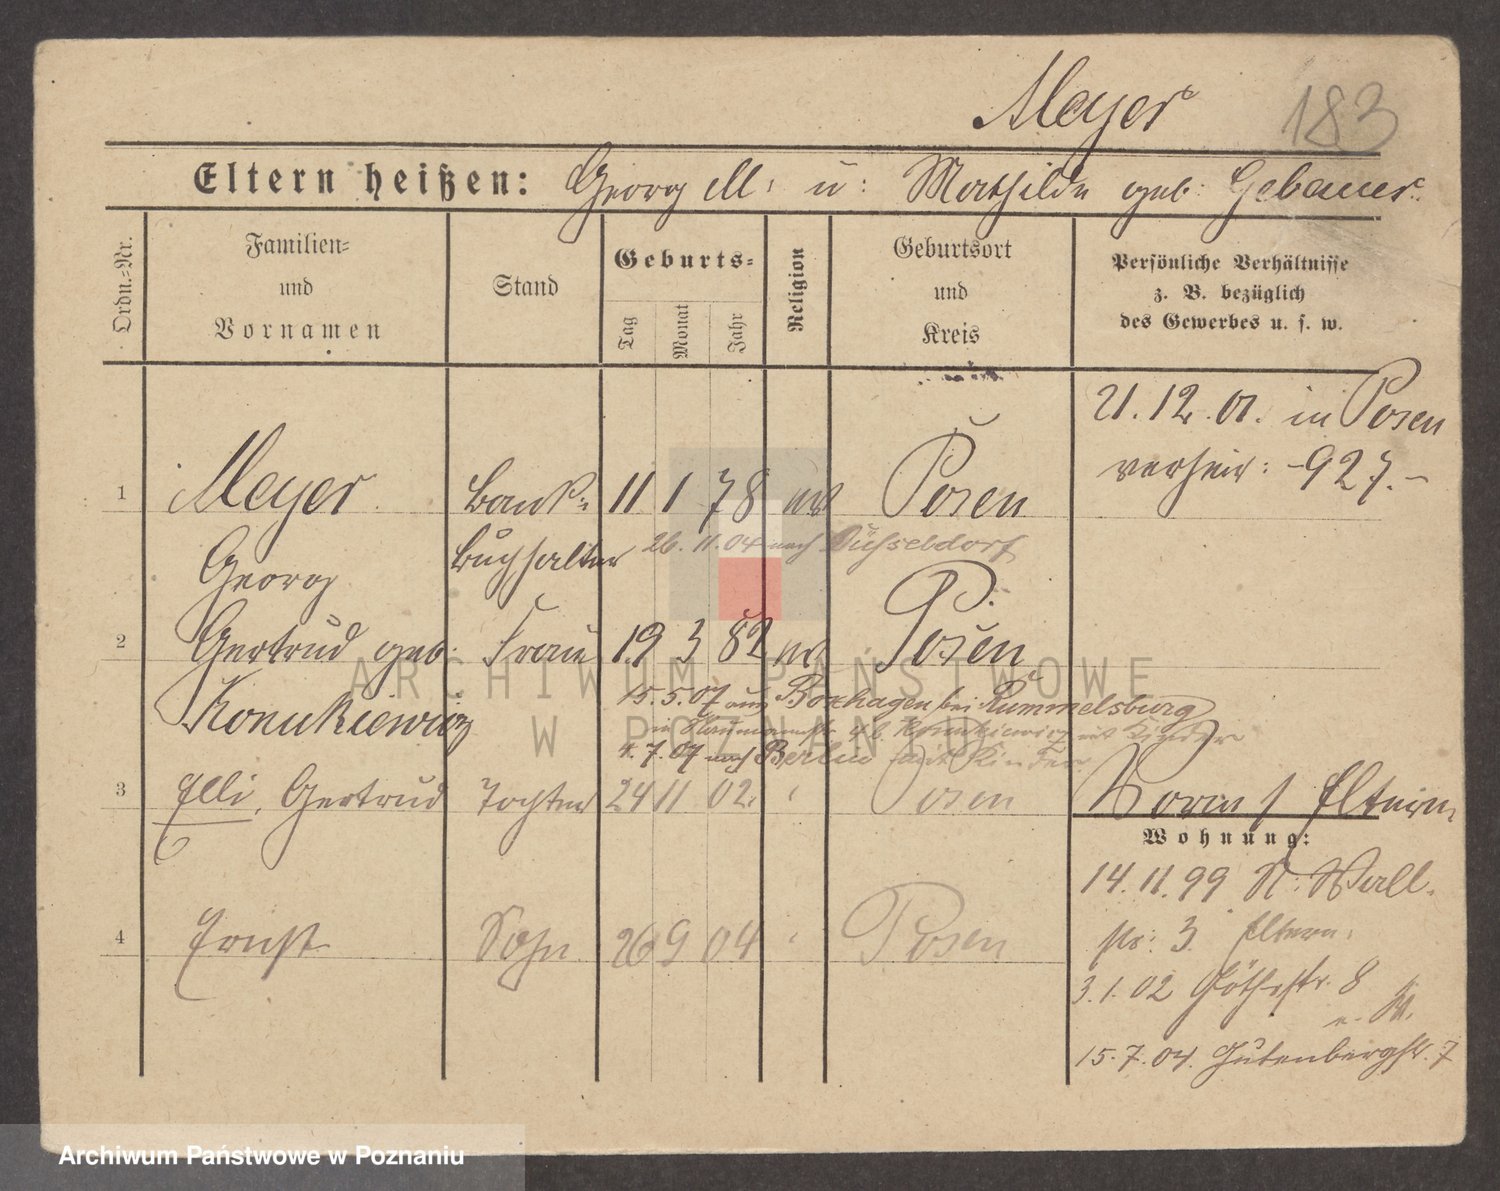 Meyer 183
Eltern heißen: Georg M: u: Mathilde geb: Gebauer.
Ordn.-Nr.
Familien-
und
Vornamen
Stand
Geburts-
Tag
Monat
Jahr
Religion
Geburtsort
und
Kreis
Persönliche Verhältnisse
z. B. bezüglich
des Gewerbes u. s. w.
21.12.01. in Posen
verheir: -927.-
1 Meyer Bank- 11 1 78 Posen
Georg Buchhalter 26.11.04 nach Düsseldorf
2 Gertrud geb. Frau 19 3 82 Posen
Konukiewicz 15.5.07 aus Boxhagen bei Rummelsburg
4.7.07 nach Berlin mit Kinder
3 Elli, Gertrud Tochter 24 11 02. Posen
Eltern
Wohnung:
14.11.99 N: Wall-
str: 3 Eltern.
4 Ernst Sohn 26 9 04 Posen
3.1.02 Göthestr. 8
15.7.04. Gutenbergstr. 7
ARCHIWUM PAŃSTWOWE
W POZNANIU
Archiwum Państwowe w Poznaniu